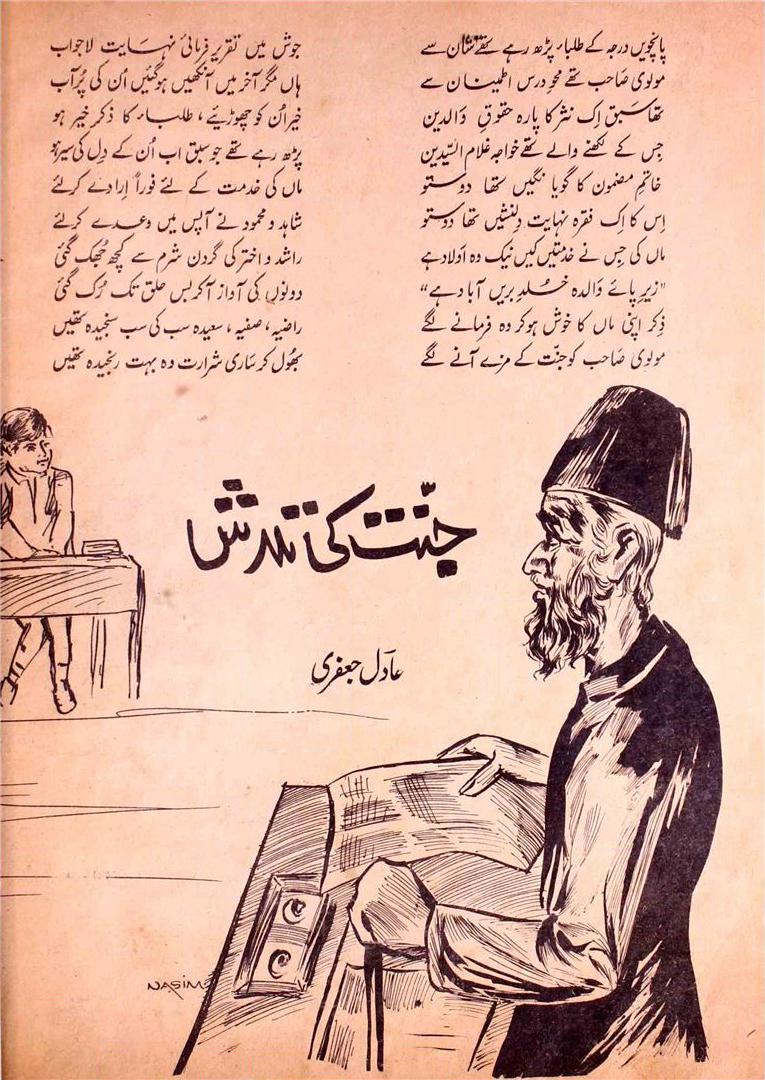 پانچویں درجہ کے طلباء پڑھ رہے تھے شان سے
مولوی صاحب تھے محوِ درس اطمینان سے
تھا سبق اِک نثر کا پارہ حقوقِ والدین
جس کے لکھنے والے تھے خواجہ غلام السّیدین
خاتمِ مضمون کا گویا نگیں تھا دوستو
اِس کا اِک فقرہ نہایت دِلنشیں تھا دوستو
ماں کی جس نے خدمتیں کیں نیک وہ اولاد ہے
"زیرِ پائے والدہ خُلدِ بریں آباد ہے"
ذِکر اپنی ماں کا خوش ہوکر وہ فرمانے لگے
مولوی صاحب کو جنّت کے مزے آنے لگے
جوش میں تقریر فرمائی نہایت لاجواب
ہاں مگر آخر میں آنکھیں ہوگئیں اُن کی پُرآب
خیر اُن کو چھوڑئیے، طلباء کا ذکرِ خیر ہو
پڑھ رہے تھے جو سبق اب اُن کے دِل کی سیر ہو
ماں کی خدمت کے لئے فوراً اِرادے کرلئے
شاہد و محمود نے آپس میں وعدے کرلئے
راشد و اختر کی گردن شرم سے کچھ جُھک گئی
دونوں کی آواز آکر بس حلق تک رُک گئی
راضیہ، صفیہ، سعیدہ سب کی سب سنجیدہ تھیں
بُھول کر ساری شرارت وہ بہت رنجیدہ تھیں
جنّت کی
عادل جعفری
NASIM